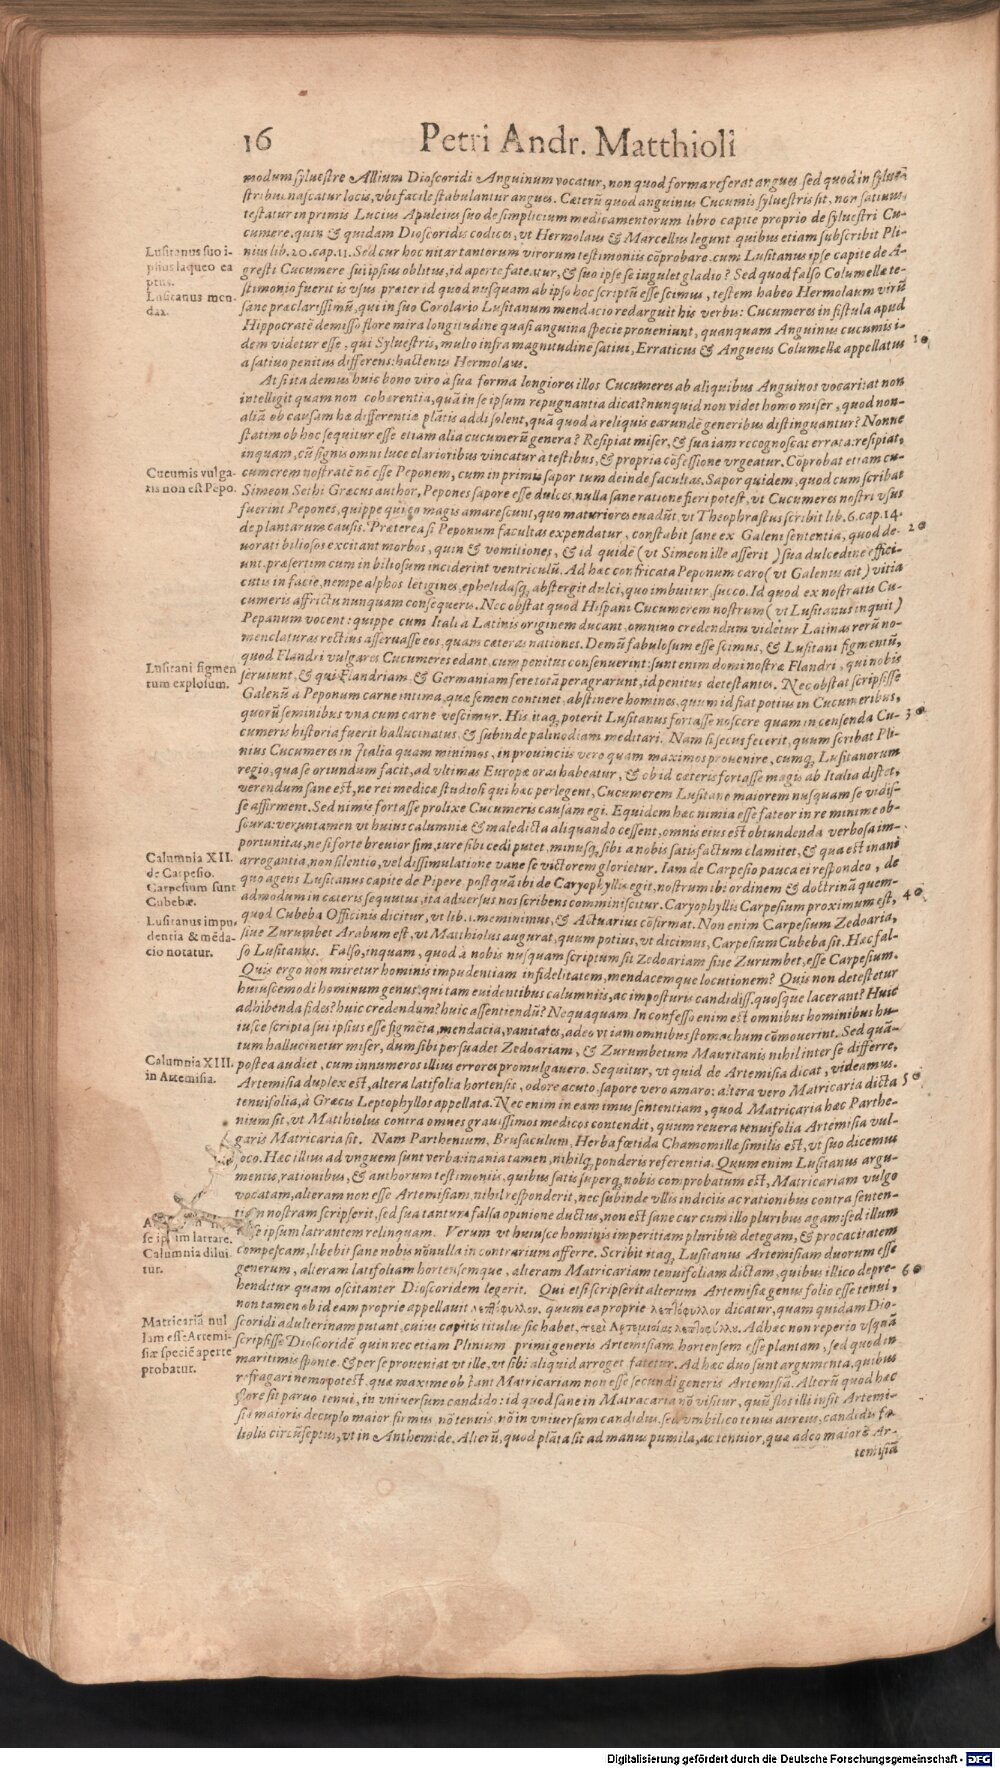 16 Petri Andr. Matthioli
modum syluestre Allium Dioscoridi Anguinum vocatur, non quod forma referat angues sed quod in
stribus nascatur locis, vbi facile stabulantur angues. Cæterũ quod anguinus Cucumis syluestris sit, non
testatur in primis Lucius Apuleius suo de simplicium medicamentorum libro capite proprio de syluestri Cu-
cumere, quin & quidam Dioscoridis codices, vt Hermolaus & Marcellus legunt quibus etiam subscribit Pli-
Lusitanus suo i-
psius laqueo ca
ptus.
Lusitanus men
dax.
nius lib. 20. cap. 11. Sed cur hoc nitar tantorum virorum testimoniis cõprobare cum Lusitanus ipse capite de A-
gresti Cucumere sui ipsius oblitus, id aperte fateatur, & suo ipse se iugulet gladio? Sed quod falso Columellæ te-
stimonio fuerit is vsus præter id quod nusquam ab ipso hoc scriptũ esse scimus, testem habeo Hermolaum virũ
sane præclarissimũ, qui in suo Corolario Lusitanum mendacio redarguit his verbis: Cucumeres in fistula apud
Hippocratẽ demisso flore mira longitudine quasi anguina specie proueniunt, quanquam Anguinus cucumis i-
dem videtur esse, qui Syluestris, multo infra magnitudine satiui, Erraticus & Angueus Columellæ appellatus 10
a satiuo penitus differens: hactenus Hermolaus.
At si ita demus huic bono viro a sua forma longiores illos Cucumeres ab aliquibus Anguinos vocari: at non
intelligit quam non coherentia, quã in se ipsum repugnantia dicat? nunquid non videt homo miser, quod non-
aliã ob causam hæ differentiæ plãtis addi solent, quã quod a reliquis earundẽ generibus distinguantur? Nonne
statim ob hoc sequitur esse etiam alia cucumerũ genera? Resipiat miser, & sua iam recognoscat errata: resipiat,
inquam, cũ signis omni luce clarioribus vincatur a testibus, & propria cõfessione vrgeatur. Cõprobat etiam cu-
Cucumis vulga-
ris non est Pepo.
cumerem nostratẽ nõ esse Peponem, cum in primis sapor tum deinde facultas. Sapor quidem, quod cum scribat
Simeon Sethi Græcus author, Pepones sapore esse dulces, nulla sane ratione fieri potest, vt Cucumeres nostri vsus
fuerint Pepones, quippe qui eo magis amarescunt, quo maturiores euadũt, vt Theophrastus scribit lib. 6. cap. 14.
de plantarum causis. Præterea si Peponum facultas expendatur, constabit sane ex Galeni sententia, quod de- 20
uorati biliosos excitant morbos, quin & vomitiones, & id quidẽ (vt Simeon ille asserit) sua dulcedine effici-
unt, præsertim cum in biliosum inciderint ventriculũ. Ad hæc confricata Peponum caro (vt Galenus ait) vitia
cutis in facie, nempe alphos letigines, ephelidasq; abstergit dulci, quo imbuitur, succo. Id quod ex nostratis Cu-
cumeris affrictu nunquam consequeris. Nec obstat quod Hispani Cucumerem nostrum (vt Lusitanus inquit)
Pepanum vocent: quippe cum Itali à Latinis originem ducant, omnino credendum videtur Latinas rerũ no-
menclaturas rectius asseruasse eos, quam cæteras nationes. Demũ fabulosum esse scimus, & Lusitani figmentũ,
Lusitani figmen
tum explosum.
quod Flandri vulgares Cucumeres edant, cum penitus consenuerint: sunt enim domi nostræ Flandri, qui nobis
seruiunt, & qui Flandriam & Germaniam fere totã peragrarunt, id penitus detestantes. Nec obstat scripsisse
Galenũ a Peponum carne intima, quæ semen continet, abstinere homines, quum id fiat potius in Cucumeribus,
quorũ seminibus vna cum carne vescimur. His itaq; poterit Lusitanus fortasse noscere quam in censenda Cu- 30
cumeris historia fuerit hallucinatus, & subinde palinodiam meditari. Nam si secus fecerit, quum scribat Pli-
nius Cucumeres in Italia quam minimos, in prouinciis vero quam maximos prouenire, cumq; Lusitanorum
regio, qua se oriundum facit, ad vltimas Europæ oras habeatur, & ob id cæteris fortasse magis ab Italia distet,
verendum sane est, ne rei medicæ studiosi qui hæc perlegent, Cucumerem Lusitano maiorem nusquam se vidis-
se affirment. Sed nimis fortasse prolixe Cucumeris causam egi. Equidem hæc nimia esse fateor in re minime ob-
scura: veruntamen vt huius calumniæ & maledicta aliquando cessent, omnis eius est obtundenda verbosa im-
portunitas, ne si forte breuior sim, iure sibi cedi putet, minusq; sibi a nobis satisfactum clamitet, & qua est inani
Calumnia XII.
de Carpesio.
Carpesium sunt
Cubebæ.
arrogantia, non silentio, vel dissimulatione vane se victorem glorietur. Iam de Carpesio pauca ei respondeo, de
quo agens Lusitanus capite de Pipere, postquã ibi de Caryophyllis egit, nostrum ibi ordinem & doctrinã quem-
admodum in cæteris sequutus, ita aduersus nos scribens comminiscitur. Caryophyllis Carpesium proximum est, 40
Lusitanus impu-
dentia & mẽda-
cio notatur.
quod Cubeba Officinis dicitur, vt lib. 1. meminimus, & Actuarius cõfirmat. Non enim Carpesium Zedoaria,
siue Zurumbet Arabum est, vt Matthiolus augurat, quum potius, vt dicimus, Carpesium Cubeba sit. Hæc fal-
so Lusitanus. Falso, inquam, quod à nobis nusquam scriptum sit Zedoariam siue Zurumbet, esse Carpesium.
Quis ergo non miretur hominis impudentiam infidelitatem, mendacemque locutionem? Quis non detestetur
huiuscemodi hominum genus, qui tam euidentibus calumniis, ac imposturis candidiss. quosque lacerant? Huic
adhibenda fides? huic credendum? huic assentiendũ? Nequaquam. In confesso enim est omnibus hominibus hu-
iusce scripta sui ipsius esse figmẽta, mendacia, vanitates, adeo vt iam omnibus stomachum cõmouerint. Sed quã-
tum hallucinetur miser, dum sibi persuadet Zedoariam, & Zurumbetum Mauritanis nihil inter se differre,
Calumnia XIII.
in Artemisia.
postea audiet, cum innumeros illius errores promulgauero. Sequitur, vt quid de Artemisia dicat, videamus.
Artemisia duplex est, altera latifolia hortensis, odore acuto, sapore vero amaro: altera vero Matricaria dicta 50
tenuifolia, à Græcis Leptophyllos appellata. Nec enim in eam imus sententiam, quod Matricaria hæc Parthe-
nium sit, vt Matthiolus contra omnes grauissimos medicos contendit, quum reuera tenuifolia Artemisia vul-
garis Matricaria sit. Nam Parthenium, Brusaculum, Herba fœtida Chamomillæ similis est, vt suo dicemus
loco. Hæc illius ad vnguem sunt verba inania tamen, nihilq; ponderis referentia. Quum enim Lusitanus argu-
mentis, rationibus, & authorum testimoniis, quibus satis superq; nobis comprobatum est, Matricariam vulgo
vocatam, alteram non esse Artemisiam, nihil responderit, nec subinde vllis indiciis ac rationibus contra senten-
tiam nostram scripserit, sed sua tantum falsa opinione ductus, non est sane cur cum illo pluribus agam: sed illum
se ipsum lattare.
Calumnia dilui
tur.
se ipsum latrantem relinquam. Verum vt huiusce hominis imperitiam pluribus detegam, & procacitatem
compescam, libebit sane nobis nõnulla in contrarium afferre. Scribit itaq; Lusitanus Artemisiam duorum esse
generum, alteram latifoliam hortensemque, alteram Matricariam tenuifoliam dictam, quibus illico depre- 60
henditur quam oscitanter Dioscoridem legerit. Qui etsi scripserit alterum Artemisiæ genus folio esse tenui,
non tamen ob id eam proprie appellauit λεπτόφυλλον. quum ea proprie λεπτόφυλλον dicatur, quam quidam Dio-
Matricariã nul
lam esse Artemi-
siæ speciẽ aperte
probatur.
scoridi adulterinam putant, cuius capitis titulus sic habet, περὶ Ἀρτεμισίας λεπτοφύλλου. Ad hæc non reperio vsquã
scripsisse Dioscoridẽ quin nec etiam Plinium primi generis Artemisiam hortensem esse plantam, sed quod in
maritimis sponte & per se proueniat vt ille, vt sibi aliquid arroget fatetur. Ad hæc duo sunt argumenta, quibus
refragari nemo potest, quæ maxime obstant Matricariam non esse secundi generis Artemisiã. Alterũ quod hæc
flore sit paruo tenui, in vniuersum candido: id quod sane in Matracaria nõ visitur, quũ flos illi insit Artemi-
siæ maioris decuplo maior firmus nõ tenuis, nõ in vniuersum candidus, sed vmbilico tenus aureus, candidis fo-
liolis circũseptus, vt in Anthemide. Alterũ, quod plãta sit ad manus pumila, ac tenuior, quæ adeo maiorẽ Ar-
temisiã
Digitalisierung gefördert durch die Deutsche Forschungsgemeinschaft - DFG